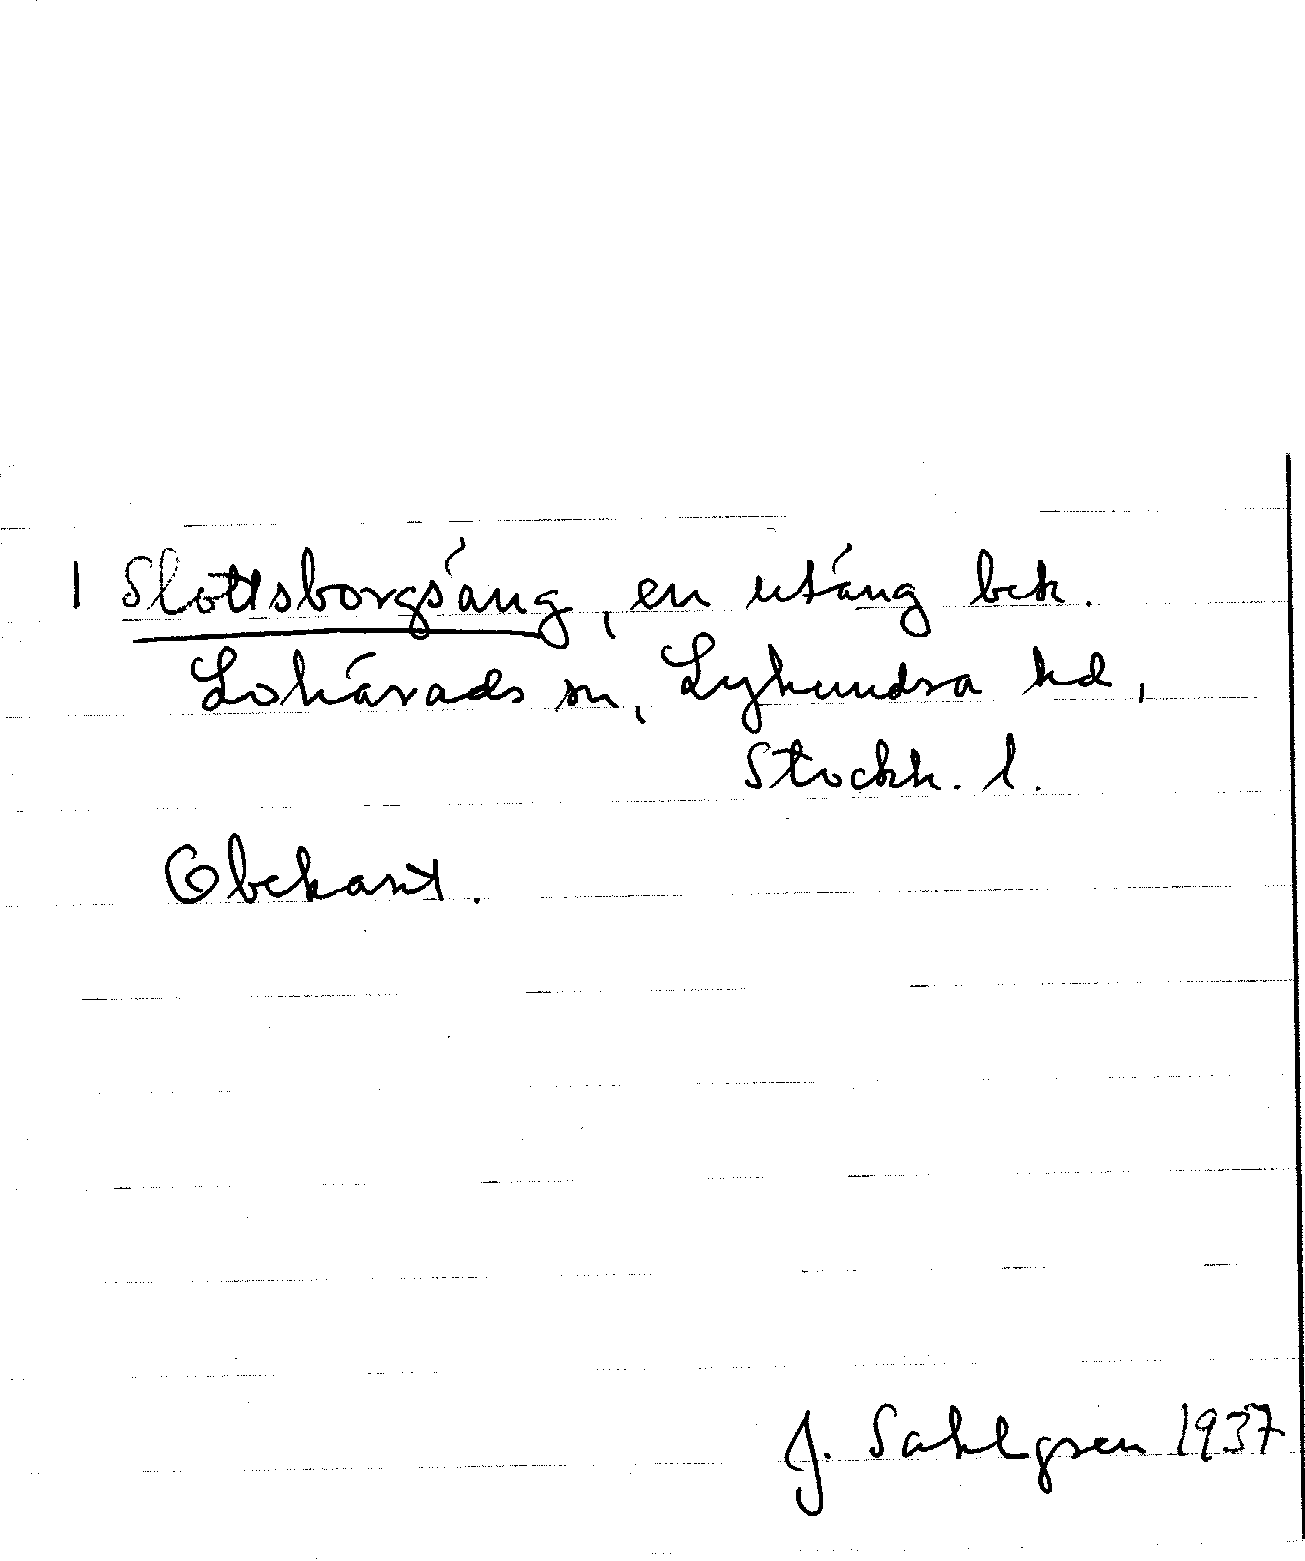 1 Slottsborgsäng, en utäng bek.
Lohärads sn, Lyhundra hd,
Stockh. l.
Obekant.
J. Sahlgren 1937